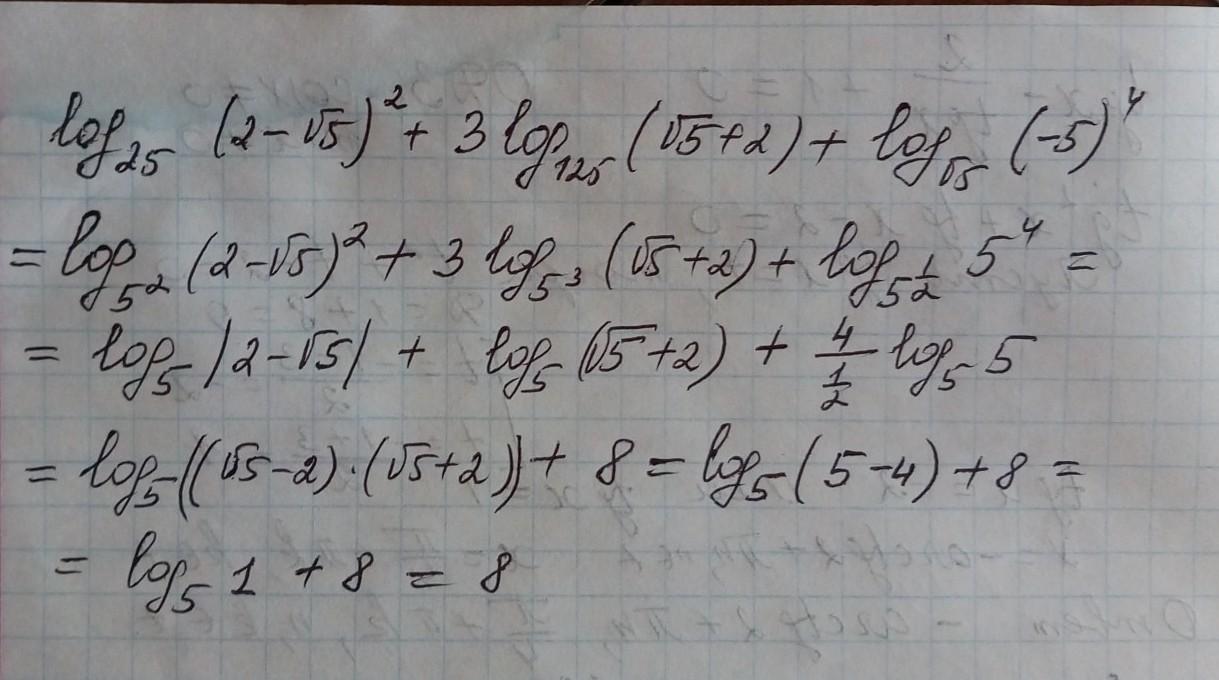 log₂₅ (2-√5)² + 3 log₁₂₅ (√5+2) + log_√5 (-5)⁴
= log_5² (2-√5)² + 3 log_5³ (√5+2) + log_5^(1/2) 5⁴ =
= log₅ |2-√5| + log₅ (√5+2) + 4/(1/2) log₅ 5
= log₅((√5-2)·(√5+2)) + 8 = log₅(5-4) + 8 =
= log₅ 1 + 8 = 8